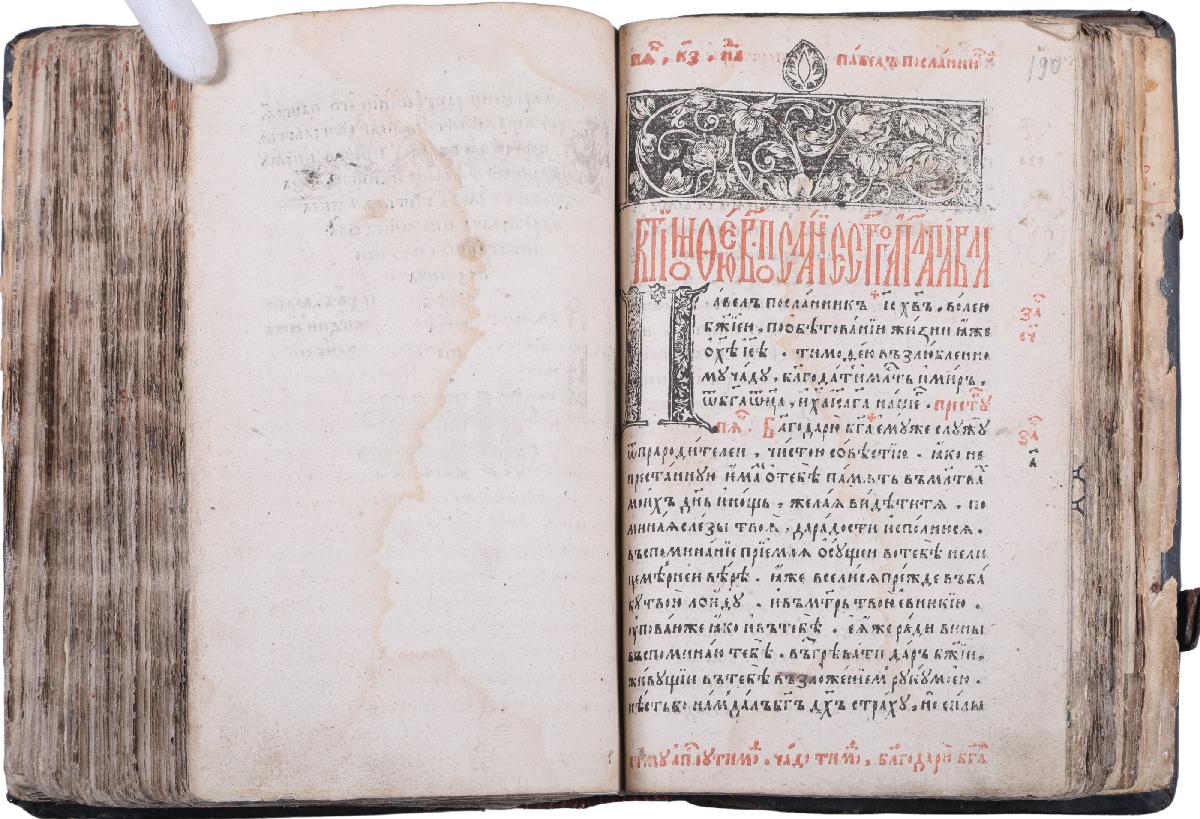 па҃, к҃з, н҃в
павелъ посланникъ
190
к тимоѳею в҃ посланїе ст҃го ап҃ла павла
Павелъ посланникъ і҃с х҃въ, волею
бж҃їею, по обѣтованїи жизни ꙗже
о хѣ҃ іс҃ѣ . тимоѳею възлюбленно
му чаду, благодать милⷭ҇ть и миръ,
ѿ бг҃а ѿц҃а, и х҃а іс҃а га҃ нашⷢ҇е . престꙋ
па҃. Благодарю бг҃а емуже служꙋ
ѿ прародителеи, чистою совѣстїю . ꙗко не
престанную имаⷨ о тебѣ память въ мл҃тваⷯ
моихъ дн҃ь и нощь, желая видѣти тя, по
миная слезы твоя, да радости исполнюся .
въспоминанїе прїемля о сущеи в тебѣ нели
цемѣрнеи вѣрѣ . ꙗже вселися прежде въ ба
бу твою лоиду . и въ мт҃рь твою евникїю .
уповаю же ꙗко и въ тебѣ . еяже ради вины
въспоминаю тебѣ . възгрѣвати даръ бж҃їи,
живущїи въ тебѣ възложенїемъ руку моею .
нѣсть бо намъ далъ бг҃ъ дх҃ъ страху, но силы
за҃
за҃
чадо тимоⷴ, благодарю бг҃а